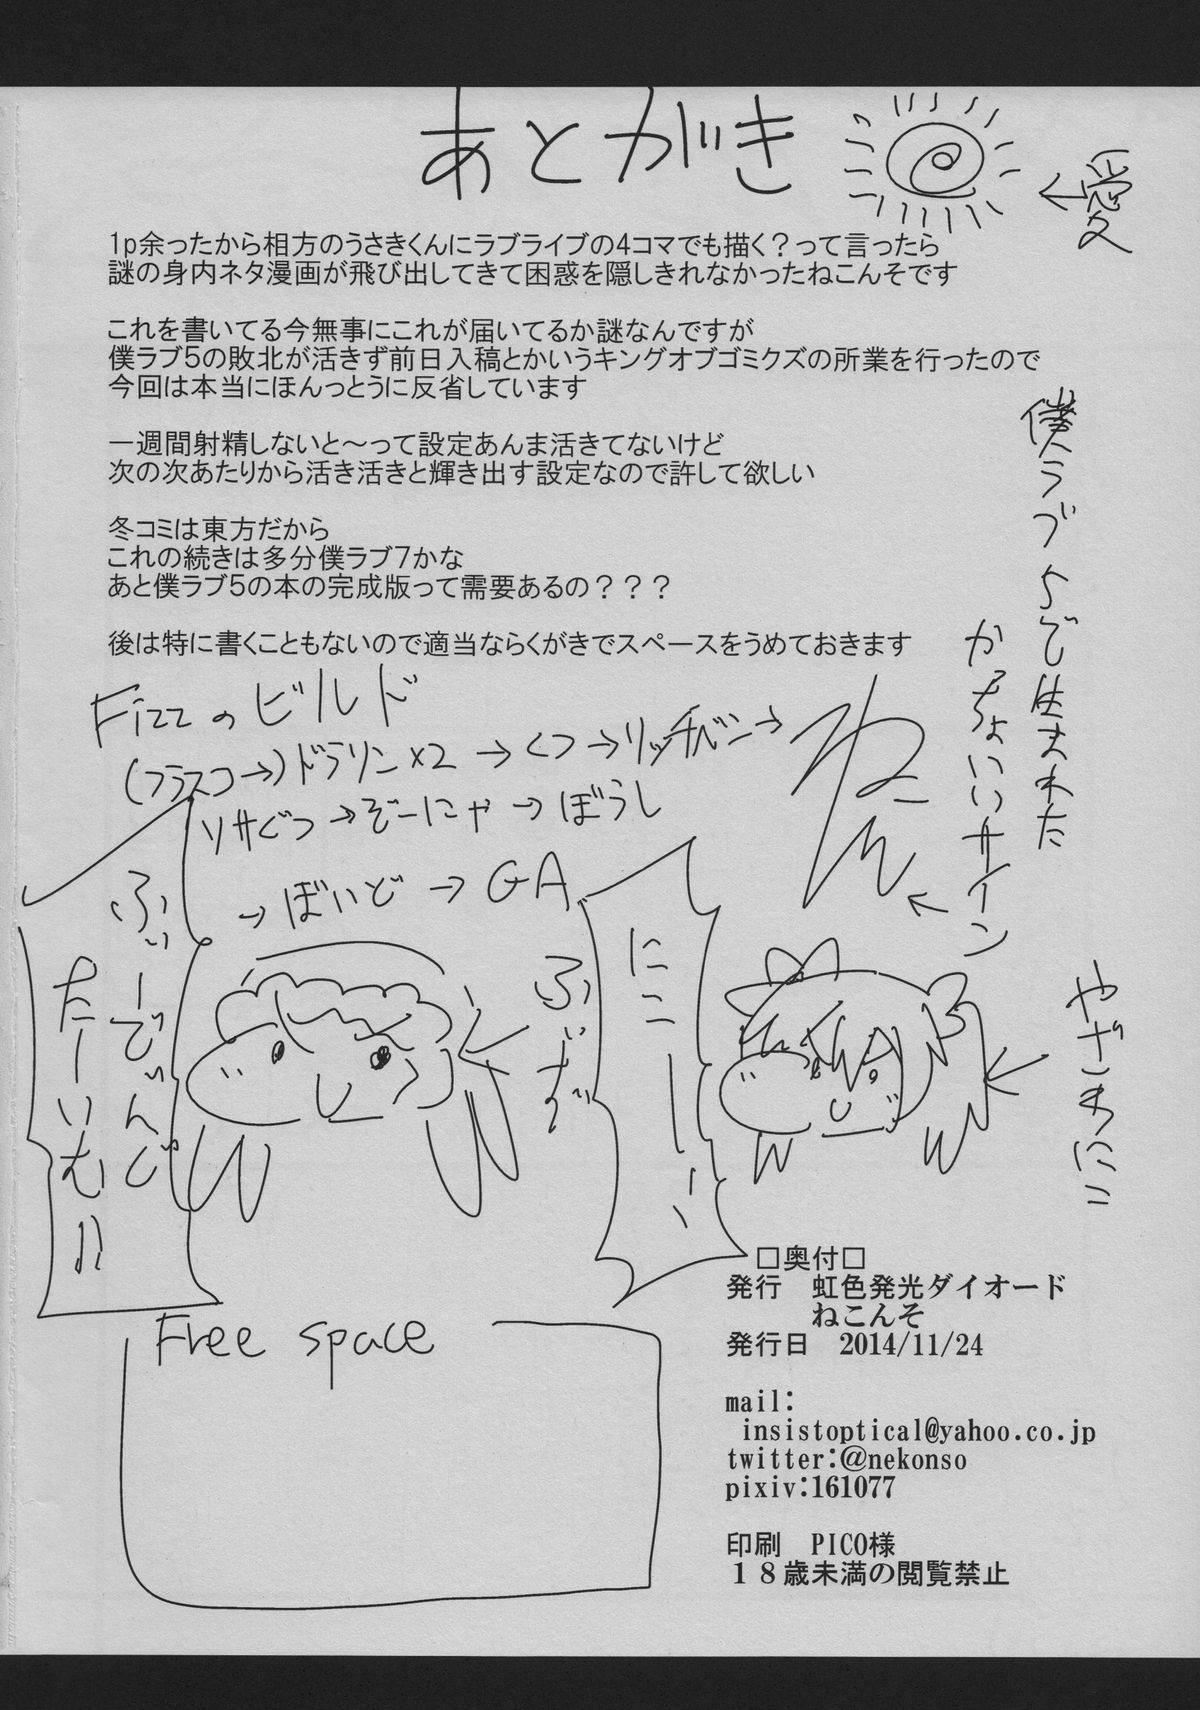 あとがき
←愛
1p余ったから相方のうさきくんにラブライブの4コマでも描く？って言ったら
謎の身内ネタ漫画が飛び出してきて困惑を隠しきれなかったねこんそです
これを書いてる今無事にこれが届いてるか謎なんですが
僕ラブ5の敗北が活きず前日入稿とかいうキングオブゴミクズの所業を行ったので
今回は本当にほんっとうに反省しています
一週間射精しないと～って設定あんま活きてないけど
次の次あたりから活き活きと輝き出す設定なので許して欲しい
冬コミは東方だから
これの続きは多分僕ラブ7かな
あと僕ラブ5の本の完成版って需要あるの？？？
後は特に書くこともないので適当ならくがきでスペースをうめておきます
僕ラブ5で生まれた
かっちょいいサイン
Fizzのビルド
(フラスコ→)ドラリン×2→くつ→リッチベン→
ソサぐつ→ぞーにゃ→ぼうし
→ぼいど→GA
ねん
やざわにこ
にこーーーい
ふぃず
ふぃーでぃんぐ
たーいむ!!
Free space
□奥付□
発行　虹色発光ダイオード
ねこんそ
発行日　2014/11/24
mail:
insistoptical@yahoo.co.jp
twitter:@nekonso
pixiv:161077
印刷　PICO様
１８歳未満の閲覧禁止